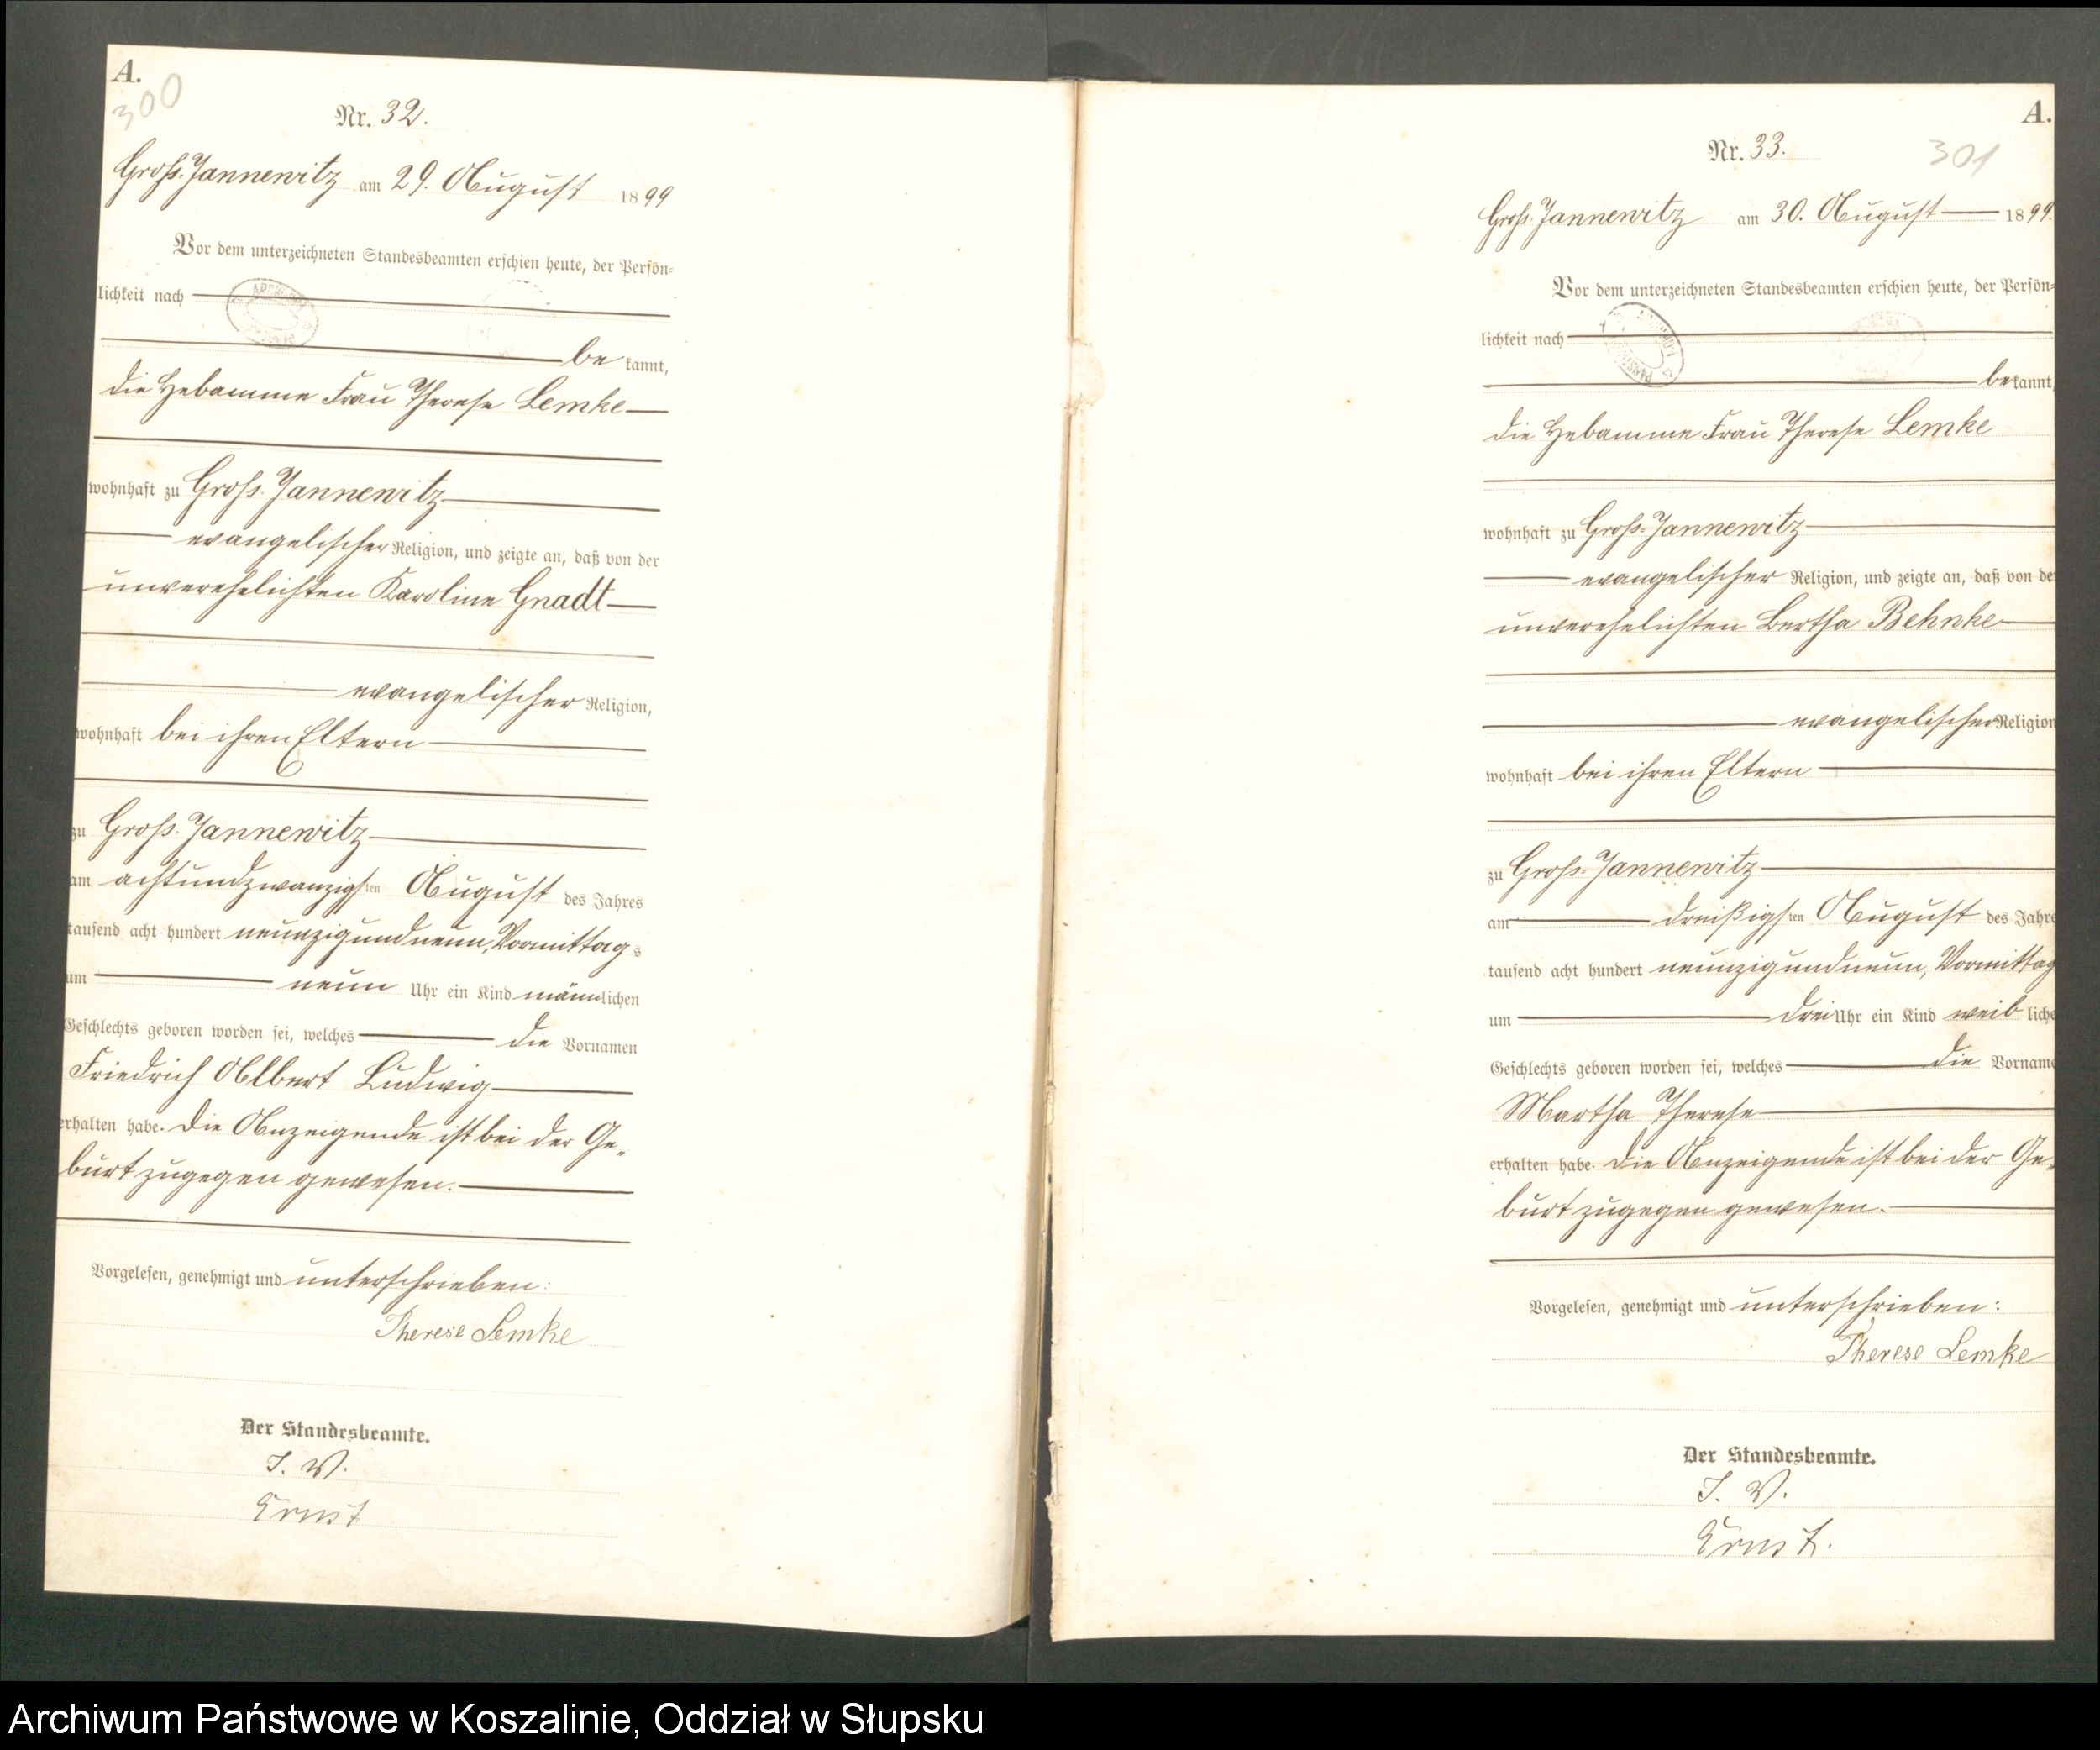 A.
300
Nr. 32.
Groß-Jannewitz am 29. August 1899
Vor dem unterzeichneten Standesbeamten erschien heute, der Persön-
lichkeit nach
bekannt,
die Hebamme Frau Therese Lemke
wohnhaft zu Groß-Jannewitz
evangelischer Religion, und zeigte an, daß von der
unverehelichten Karoline Gnadt
evangelischer Religion,
wohnhaft bei ihren Eltern
zu Groß-Jannewitz
am achtundzwanzigsten August des Jahres
tausend acht hundert neunzigundneun, Vormittags
um neun Uhr ein Kind männlichen
Geschlechts geboren worden sei, welches die Vornamen
Friedrich Albert Ludwig
erhalten habe. Die Anzeigende ist bei der Ge-
burt zugegen gewesen.
Vorgelesen, genehmigt und unterschrieben:
Therese Lemke
Der Standesbeamte.
I. V.
Ernst
A.
301
Nr. 33.
Groß-Jannewitz am 30. August 1899.
Vor dem unterzeichneten Standesbeamten erschien heute, der Persön-
lichkeit nach
bekannt,
die Hebamme Frau Therese Lemke
wohnhaft zu Groß-Jannewitz
evangelischer Religion, und zeigte an, daß von der
unverehelichten Bertha Behnke
evangelischer Religion
wohnhaft bei ihren Eltern
zu Groß-Jannewitz
am dreißigsten August des Jahre
tausend acht hundert neunzigundneun, Vormittag
um drei Uhr ein Kind weibliche
Geschlechts geboren worden sei, welches die Vorname
Martha Therese
erhalten habe. Die Anzeigende ist bei der Ge-
burt zugegen gewesen.
Vorgelesen, genehmigt und unterschrieben:
Therese Lemke
Der Standesbeamte.
I. V.
Ernst.
Archiwum Państwowe w Koszalinie, Oddział w Słupsku